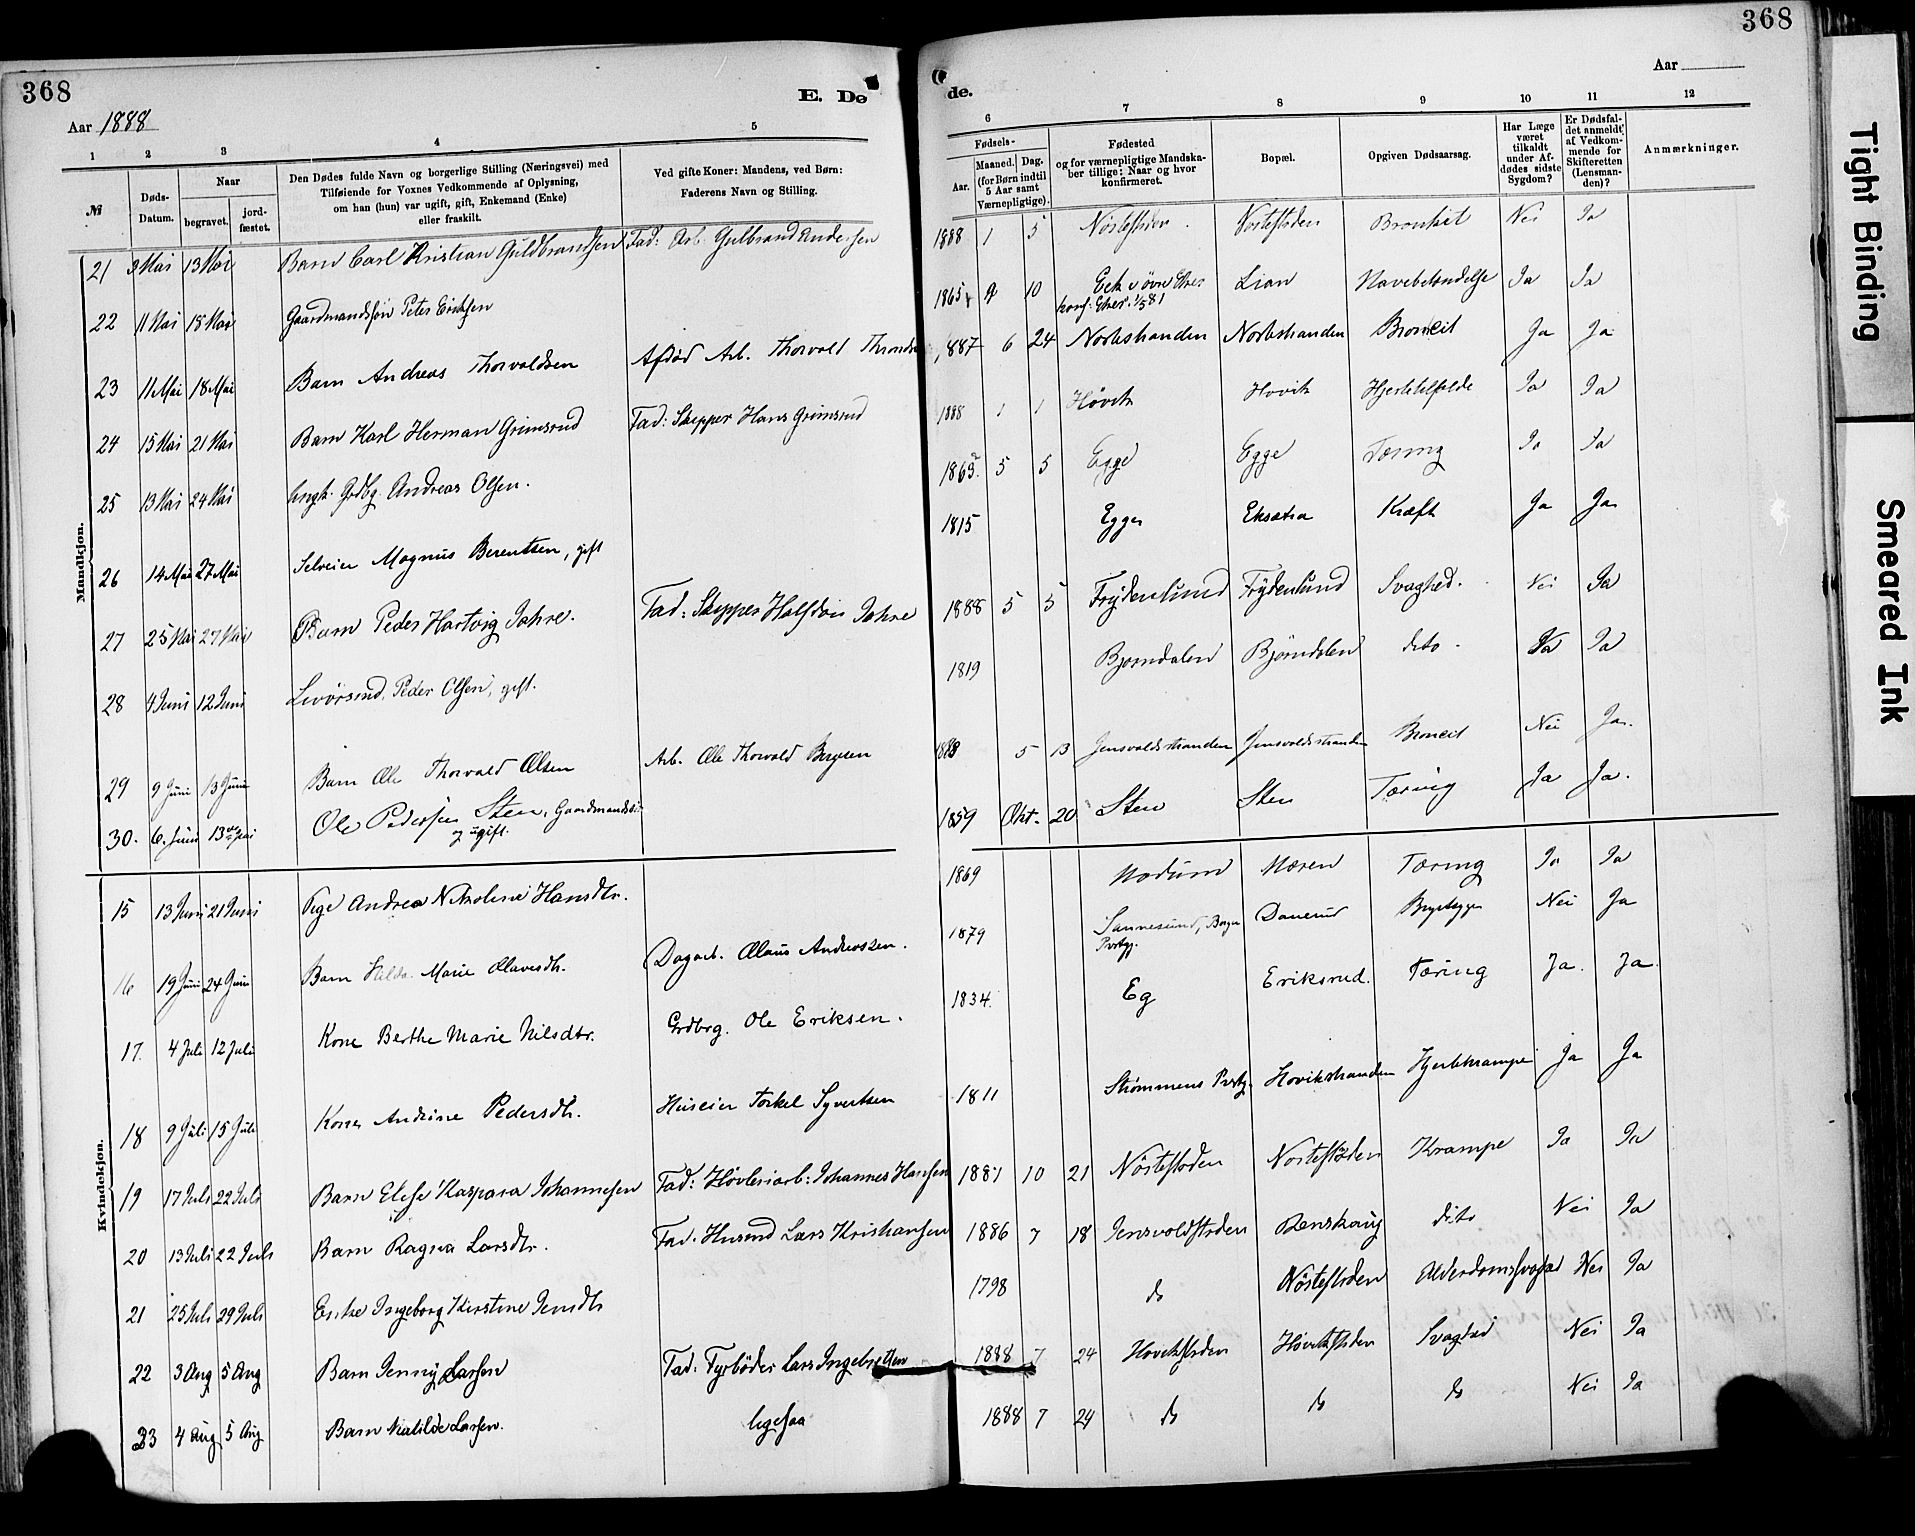 368
368
Aar 1888
E. Dø
de.
Aar
1 2 3 4 5
6 7 8 9 10 11 12
№
Døds-Datum.
Naar
begravet.
jord-fæstet.
Den Dødes fulde Navn og borgerlige Stilling (Næringsvei) med
Tilføiende for Voxnes Vedkommende af Oplysning,
om han (hun) var ugift, gift, Enkemand (Enke)
eller fraskilt.
Ved gifte Koner: Mandens, ved Børn:
Faderens Navn og Stilling.
Fødsels-
Aar.
Maaned.
Dag.
(for Børn indtil
5 Aar samt
Værnepligtige).
Fødested
og for værnepligtige Mandska-
ber tillige: Naar og hvor
konfirmeret.
Bopæl.
Opgiven Dødsaarsag.
Har Læge
været
tilkaldt
under Af-
dødes sidste
Sygdom?
Er Dødsfal-
det anmeldt
af Vedkom-
mende for
Skifteretten
(Lensman-
den)?
Anmærkninger.
Mandkjøn.
21 9 Mai 13 Mai Barn Carl Kristian Guldbrandsen Fad: Arb. Gulbrand Andersen 1888 1 5 Nøstestrden Bronkit Nei Ja
22 11 Mai 18 Mai Gaardmandssøn Peter Eriksen 1865 10 Lian Ja Ja
23 11 Mai 18 Mai Barn Andreas Thorvaldsen Afdød Arb. Thorvald 1887 6 24 Norbstranden Norbstranden Ja Ja
24 15 Mai 21 Mai Barn Karl Herman Grimsrud Fad: Skipper Hans Grimsrud 1888 1 1 Høvik Hovik Ja Ja
25 13 Mai 24 Mai Ungk. Grdbg. Andreas Olsen. 5 5 Egge Egge Tæring Ja Ja
26 14 Mai 27 Mai Selveier Magnus Berentsen, gift 1815 Egge Eksætra Kræft Ja Ja
27 25 Mai 27 Mai Barn Peder Hartvig Jahre. Fad: Skipper Halfdan Jahre 1888 5 5 Frydenlund Frydenlund Svaghed. Nei Ja
28 4 Juni 12 Juni Peder Olsen, gift. 1819 Bjorndalen Bjørndalen dito Ja
29 9 Juni 13 Juni Barn Ole Thorvald Olsen Arb. Ole Thorvald 1888 5 13 Jensvoldstranden Jensvoldstranden Nei Ja.
30. 6. Juni 13 Ole Pedersen Sten, Gaardmandss. ugift. 1859 Okt. 20 Sten Sten Tæring Ja Ja.
Kvindekjøn.
15 13 Juni 21 Juni Pige Andrea Nikoline Hansdtr. 1869 Modum Tæring Ja Ja
16 19 Juni 24 Juni Barn Hilda Marie Olavesdtr. Dagarb. Olaus Andreassen. 1879 Sannesund, Danerud Nei Ja
17. 4 Juli 12 Juli Kone Berthe Marie Nilsdtr. Grdbrg. Ole Eriksen. 1834. Eg Eriksrud. Tæring Ja. Ja.
18 9 Juli 15 Juli Kone Andrine Pedersdtr. Huseier Torkel Syvertsen 1811 Strømmens Prstgj. Hovikstranden Hjertekrampe Ja Ja
19 17 Juli 22 Juli Barn Elise Kaspara Johannesen Fad: Høvleriarb: Johannes Hansen 1887 10 21 Nøstestrden Krampe Ja Ja
20 13 Juli 22 Juli Barn Ragna Larsdtr. Fad. Husmd Lars Kristiansen 1886 7 18 Jensvoldstrden Renskoug dito Nei Ja
21 25 Juli 29 Juli Enke Ingeborg Kirstine Jensdtr 1798 do Nøstestrden Alderdomssvaghed Nei Ja
22 3 Aug 5 Aug Barn Jenny Larsen Fad: Fyrbøder Lars Ingebretsen 1888 7 24 Hovikstrden Høvikstrden Svaghed Nei Ja
23 4 Aug 5 Aug Barn Matilde Larsen. ligesaa 1888 7 24 do do do Nei Ja
Tight Binding
Smeared Ink